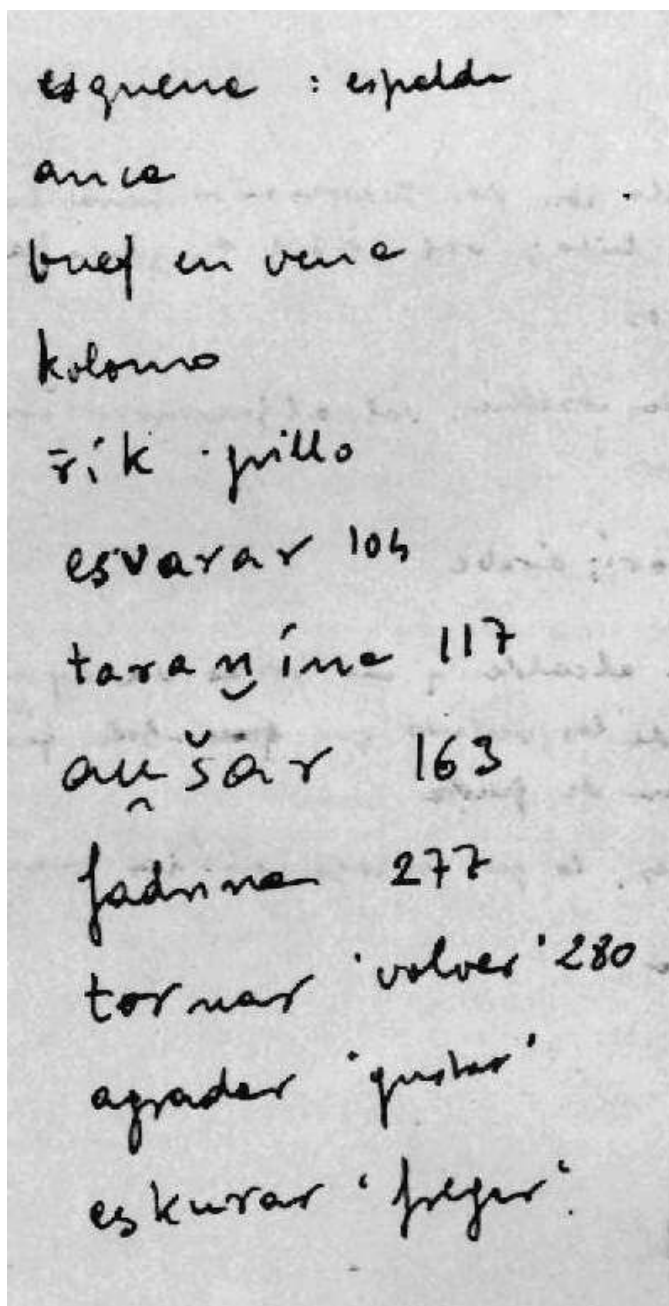 esquena : espalda
anca
buef en vena
koloma
r̄ík · grillo
esvarar 104
taranína 117
au̯šar 163
fadrina 277
tornar 'volver' 280
agradar 'gustar'
eskurar 'fregar'